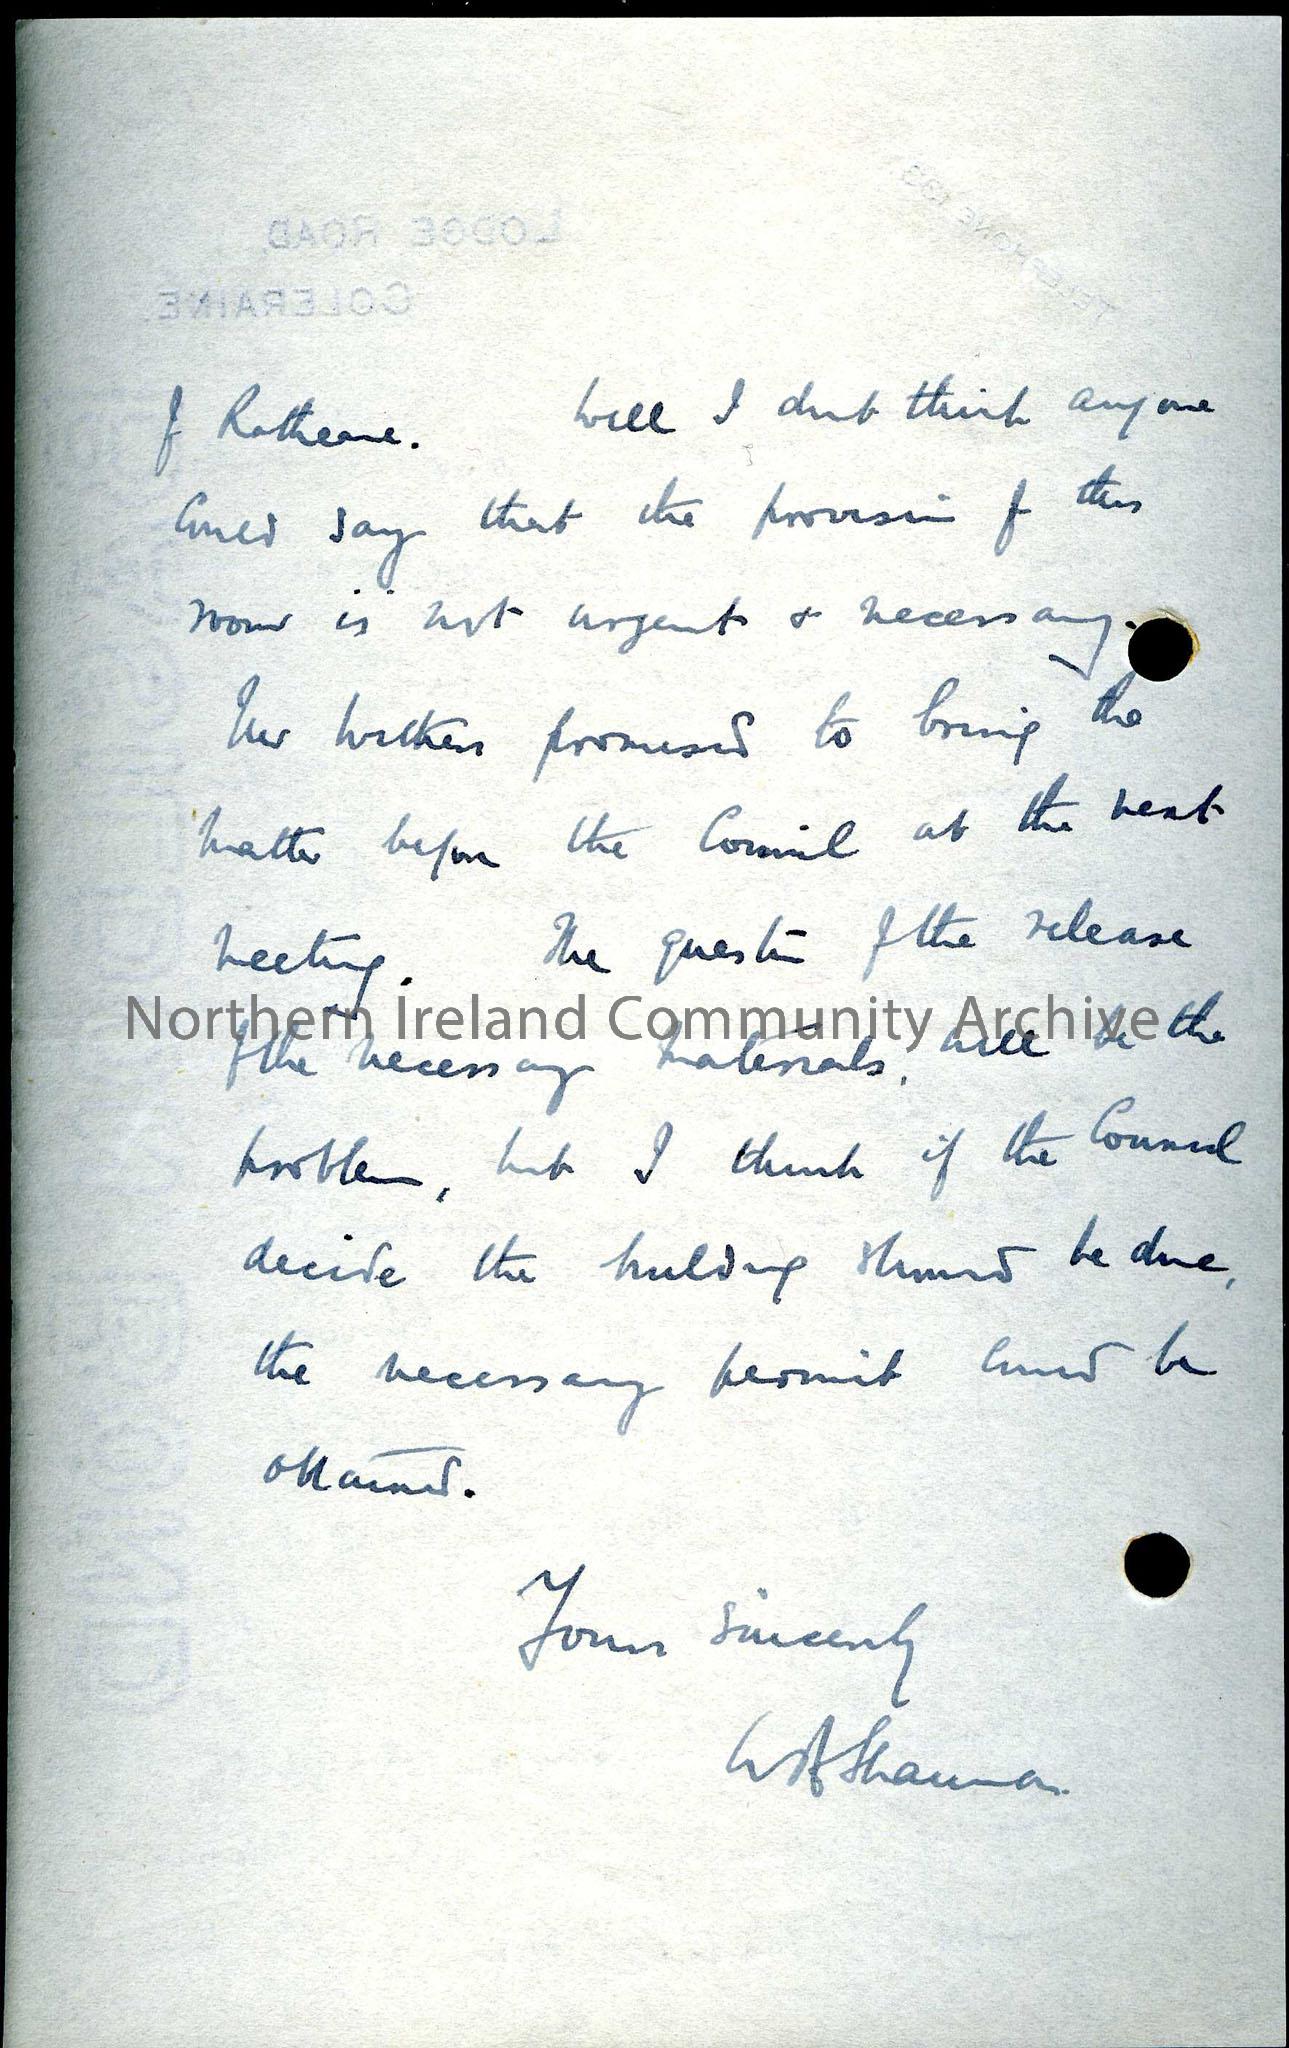 of Ratheane. Well I dont think anyone
could say that the provision of this
room is not urgent & necessary.
promised to bring the
matter before the Council at the next
meeting. The question of the release
Northern Ireland Community Archive
of the necessary materials, will be the
problem, but I think if the Council
decide the building should be done,
the necessary permit could be
obtained.
Yours sincerely
W A Shannon.
LODGE ROAD,
COLERAINE.
TELEPHONE 193